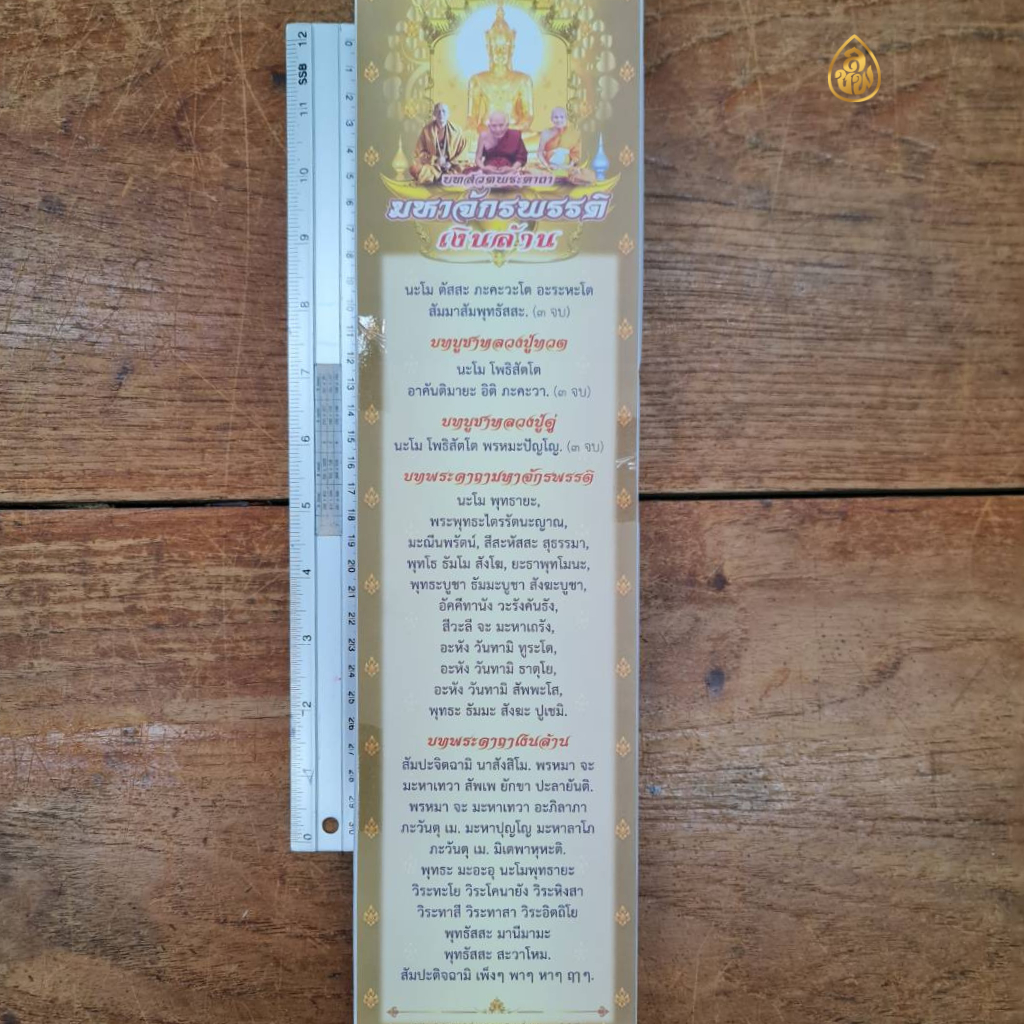 บทสวดพระคาถา
มหาจักรพรรดิ
เงินล้าน
นะโม ตัสสะ ภะคะวะโต อะระหะโต
สัมมาสัมพุทธัสสะ. (๓ จบ)
บทบูชาหลวงปู่ทวด
นะโม โพธิสัตโต
อาคันติมายะ อิติ ภะคะวา. (๓ จบ)
บทบูชาหลวงปู่ดู่
นะโม โพธิสัตโต พรหมะปัญโญ. (๓ จบ)
บทพระคาถามหาจักรพรรดิ
นะโม พุทธายะ,
พระพุทธะไตรรัตนะญาณ,
มะณีนพรัตน์, สีสะหัสสะ สุธรรมา,
พุทโธ ธัมโม สังโฆ, ยะธาพุทโมนะ,
พุทธะบูชา ธัมมะบูชา สังฆะบูชา,
อัคคีทานัง วะรังคันธัง,
สีวะลี จะ มะหาเถรัง,
อะหัง วันทามิ ทูระโต,
อะหัง วันทามิ ธาตุโย,
อะหัง วันทามิ สัพพะโส,
พุทธะ ธัมมะ สังฆะ ปูเชมิ.
บทพระคาถาเงินล้าน
สัมปะจิตฉามิ นาสังสิโม. พรหมา จะ
มะหาเทวา สัพเพ ยักขา ปะลายันติ.
พรหมา จะ มะหาเทวา อะภิลาภา
ภะวันตุ เม. มะหาปุญโญ มะหาลาโภ
ภะวันตุ เม. มิเตพาหุหะติ.
พุทธะ มะอะอุ นะโมพุทธายะ
วิระทะโย วิระโคนายัง วิระหิงสา
วิระทาสี วิระทาสา วิระอิตถิโย
พุทธัสสะ มานีมามะ
พุทธัสสะ สะวาโหม.
สัมปะติจฉามิ เพ็งๆ พาๆ หาๆ ฤๅๆ.
SSB